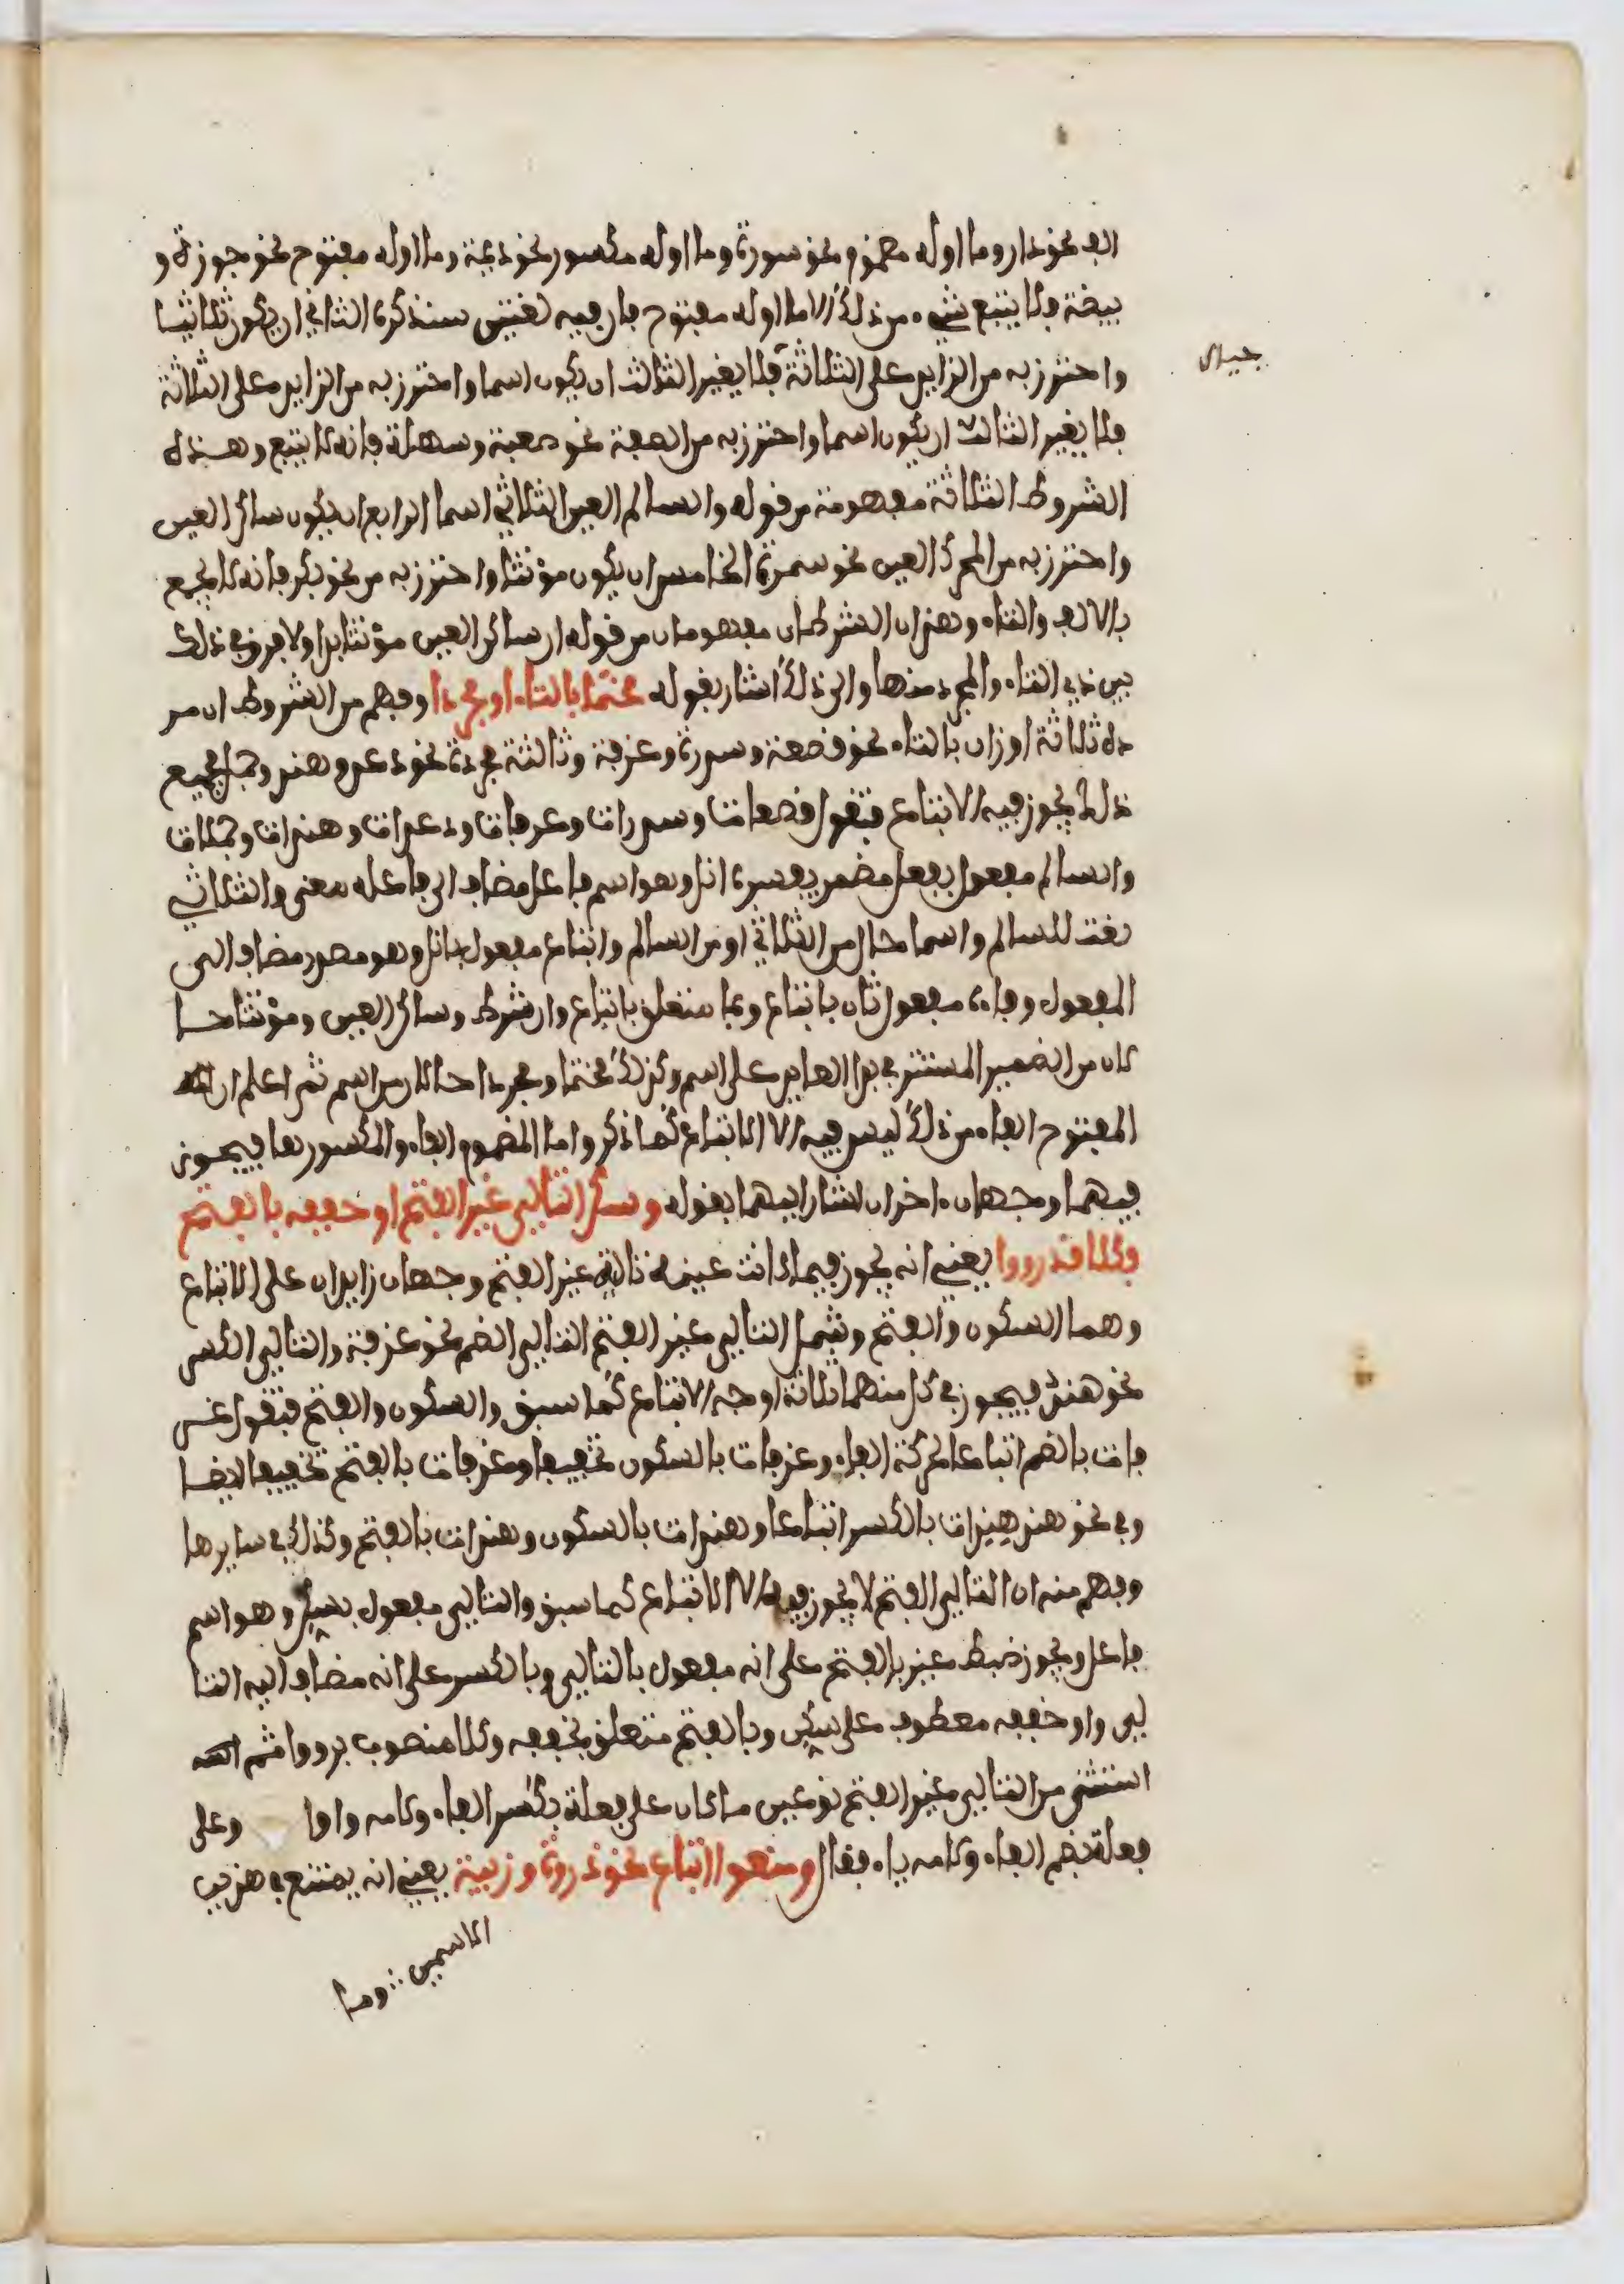 الف نحو دار وما اوله مضموم نحو سورة وما اوله مكسور نحو ديمة وما اوله مفتوح نحو جوزة و
بيضة فلا يتبع شيء من ذلك الا ما اوله مفتوح فان فيه لغتين سنذكره الثاني ان يكون ثلاثيا
واحترز به من الزايد على الثلاثة فلا يغير الثالث ان يكون اسما واحترز به من الزايد على الثلاثة
فلا يغير الثالث ان يكون اسما واحترز به من الصفة نحو صعبة وسهلة فانه لا يتبع وهذه
الشروط الثلاثة مفهومة من قوله والسالم العين الثلاثي اسما الرابع ان يكون ساكن العين
واحترز به من المحرك العين نحو سمرة الخامس ان يكون مؤنثا واحترز به من نحو بكر فانه لا يجمع
بالالف والتاء وهذان الشرطان مفهومان من قوله ان ساكن العين مؤنثا بدا ولا فرق في ذلك
بين ذي التاء والمجرد منها والى ذلك اشار بقوله مختتما بالتاء او مجردا وفهم من الشروط ان هذ
ه ثلاثة اوزان بالتاء نحو قصعة وسدرة وغرفة وثلاثة مجردة نحو دعد وهند وجمل فجميع
ذلك يجوز فيه الاتباع فتقول قصعات وسدرات وغرفات ودعدات وهندات وجملات
والسالم مفعول بفعل مضمر يفسره انل وهو اسم فاعل مضاف الى فاعله معنى والثلاثي
نعت للسالم واسما حال من الثلاثي او من السالم واتباع مفعول بانل وهو مصدر مضاف الى
المفعول وفاءه مفعول ثان باتباع وبما متعلق باتباع وان شرط وساكن العين ومؤنثا حا
لان من الضمير المستتر في بدا العايد على اسم وكذلك مختتما ومجردا حالان من اسم ثم اعلم ان
المفتوح الفاء من ذلك ليس فيه الا الاتباع كما ذكر واما المضموم الفاء والمكسورها فيجوز
فيهما وجهان اخران اشار اليهما بقوله وسكن التالي غير الفتح او خففه بالفتح
فكلا قد رووا يعني انه يجوز فيما كانت عينه تالية غير الفتح وجهان زايدان على الاتباع
وهما السكون والفتح وشمل التالي غير الفتح التالي الضم نحو غرفة والتالي الكسر
نحو هند فيجوز في كل منهما ثلاثة اوجه الاتباع كما سبق والسكون والفتح فتقول غر
فات بالضم اتباعا لحركة الفاء وغرفات بالسكون تخفيفا وغرفات بالفتح تخفيفا ايضا
وفي نحو هند هندات بالكسر اتباعا وهندات بالسكون وهندات بالفتح وكذلك في سايرها
وفهم منه ان التالي الفتح لا يجوز فيه الا الاتباع كما سبق والتالي مفعول بسكن وهو اسم
فاعل ويجوز ضبط غير بالفتح على انه مفعول بالتالي وبالكسر على انه مضاف اليه التا
لي واو خففه معطوف على سكن وبالفتح متعلق بخففه وكلا منصوب برووا ثم انه
استثنى من التالي غير الفتح نوعين ما كان على فعلة بكسر الفاء ولامه واوا وعلى
فعلة بضم الفاء ولامه ياء فقال ومنعوا اتباع نحو ذروة وزبية يعني انه يمتنع في هذين
الاسمين وما